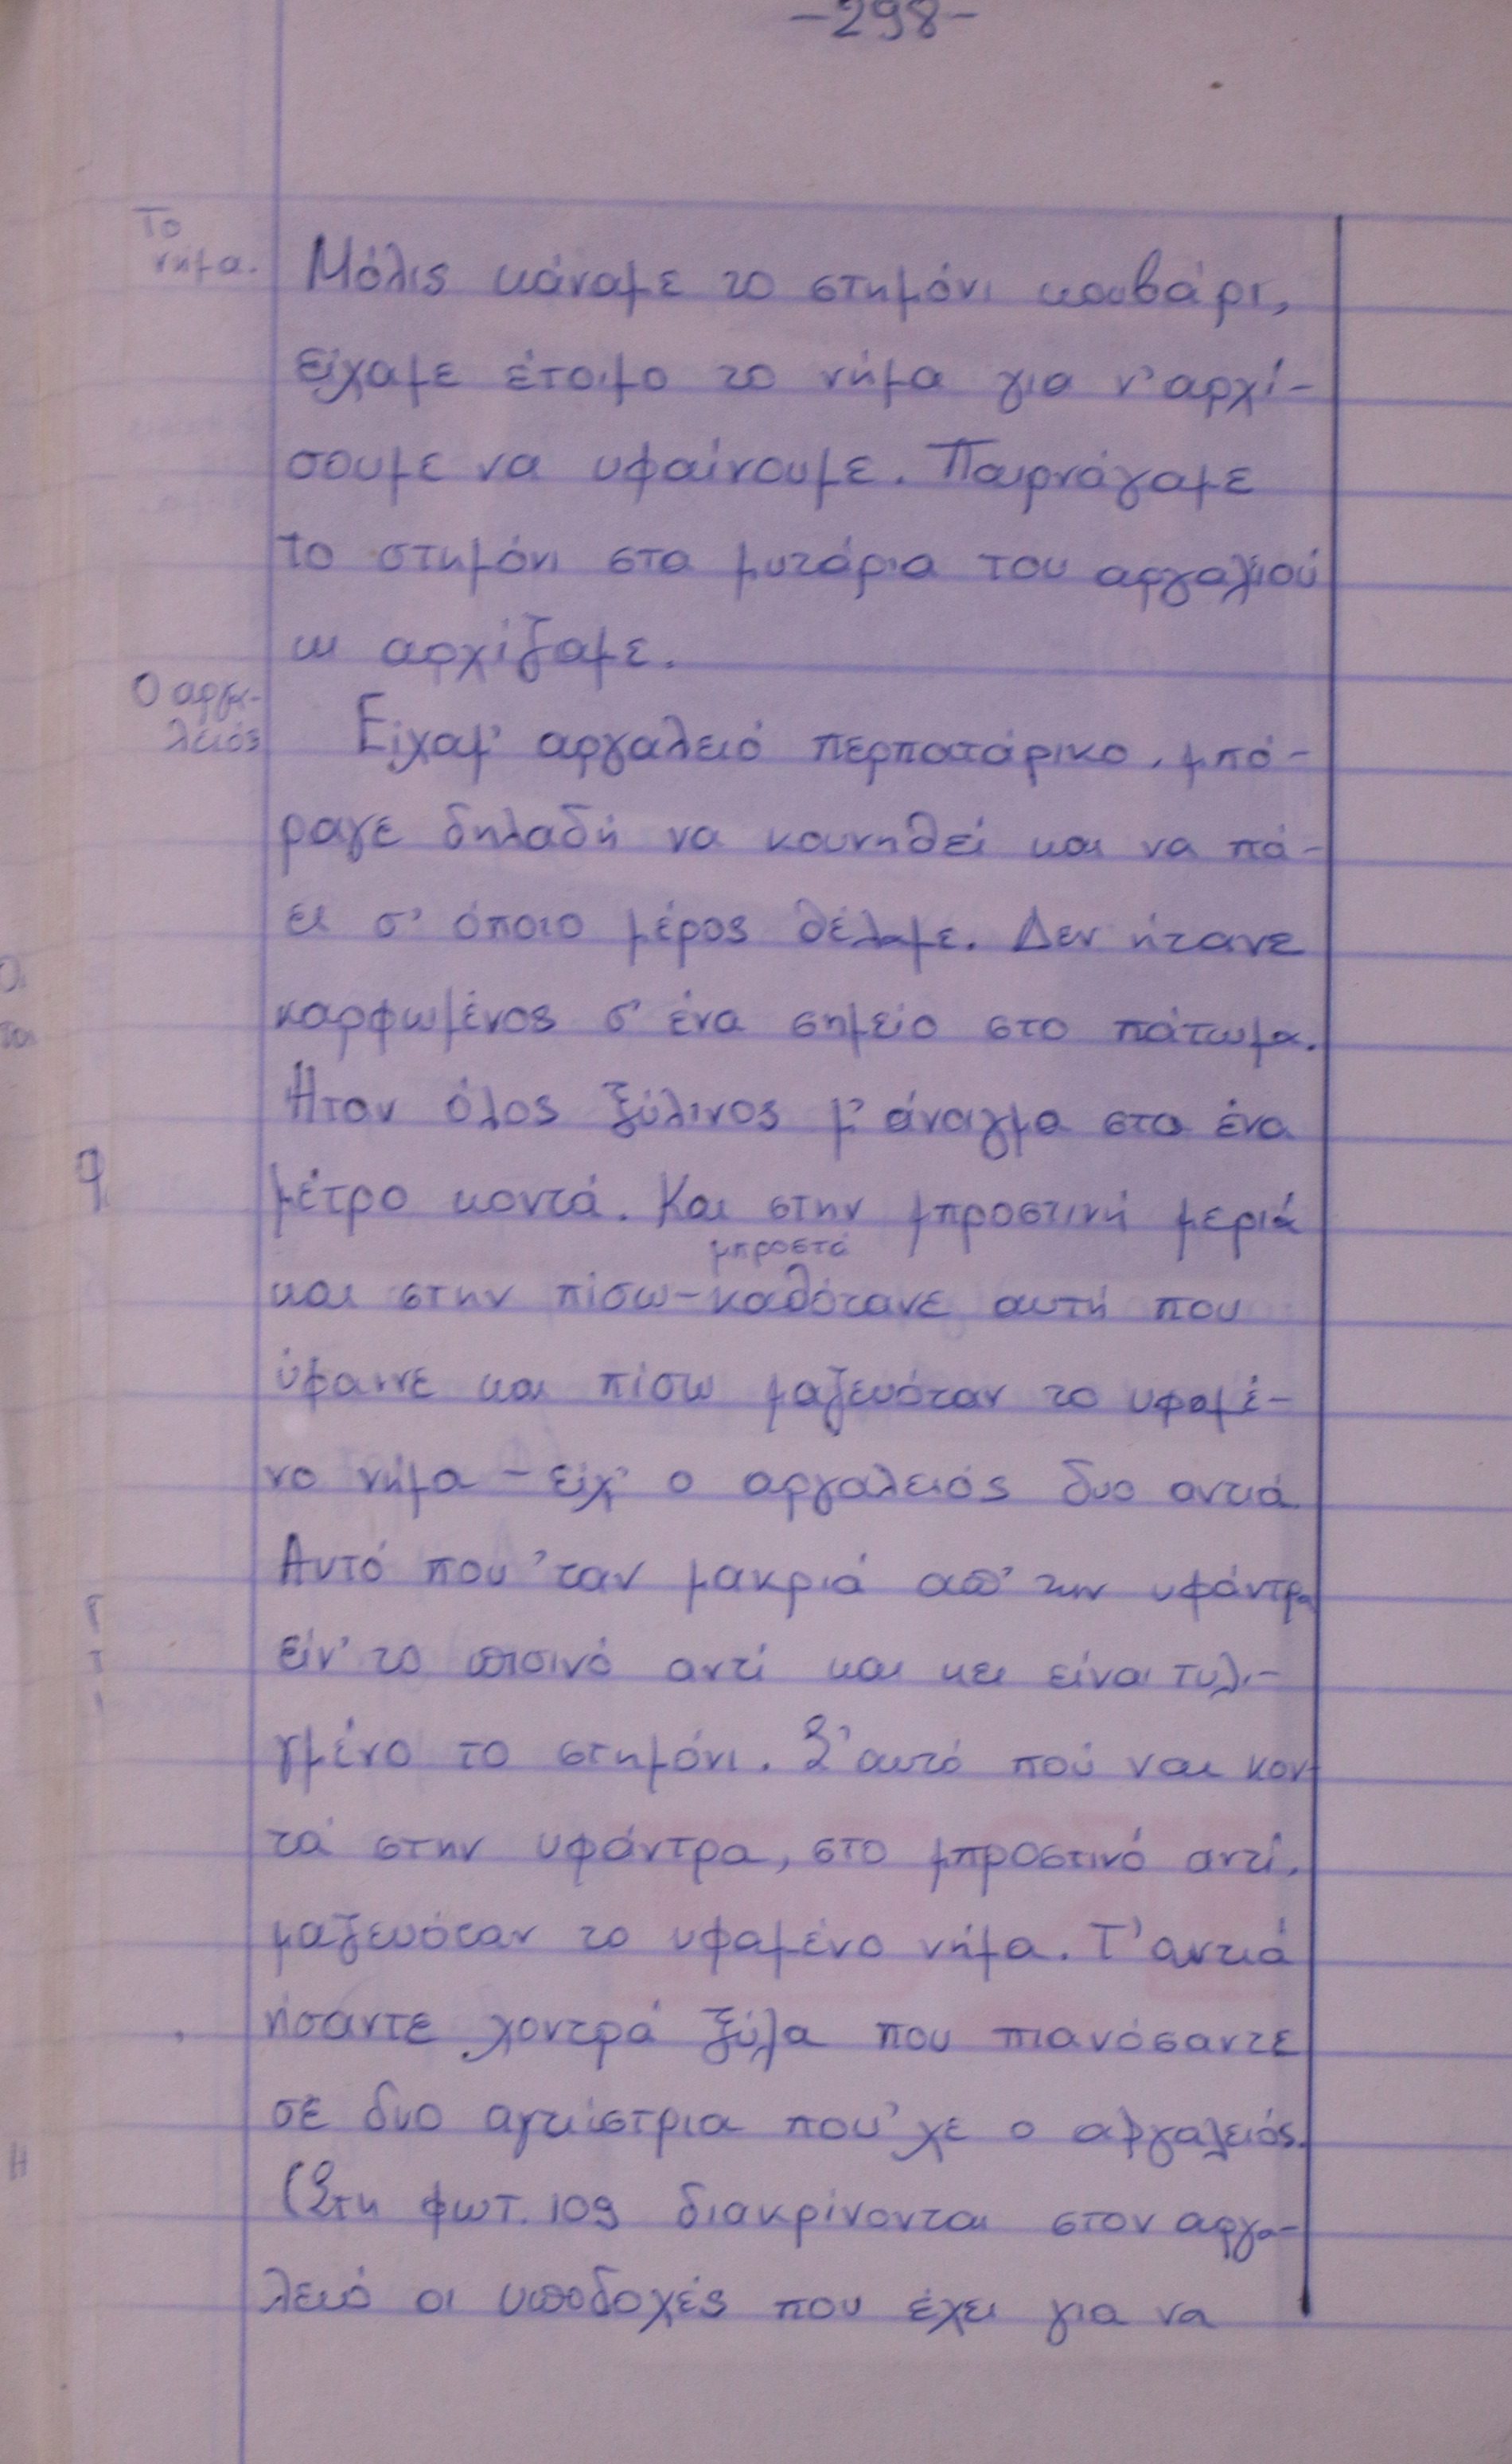 -298-
Το
νήμα.
Μόλις κάναμε το στημόνι κουβάρι,
είχαμε έτοιμο το νήμα για ν' αρχί-
σουμε να υφαίνουμε. Παιρνάγαμε
το στημόνι στα μυτάρια του αργαλιού
κι αρχίζαμε.
Ο αργα-
λειός
Είχαμ' αργαλειό περπατάρικο, μπό-
ραγε δηλαδή να κουνηθεί και να πά-
ει σ' όποιο μέρος θέλαμε. Δεν ήτανε
καρφωμένος σ' ένα σημείο στο πάτωμα.
Ήταν όλος ξύλινος μ' άναιγμα στα ένα
μέτρο κοντά. Και στην μπροστινή μεριά
μπροστά
και στην πίσω-καθότανε αυτή που
ύφαινε και πίσω μαζευόταν το υφαμέ-
νο νήμα - είχ' ο αργαλειός δυο αντιά
Αυτό που 'ταν μακριά απ' την υφάντρα
είν' το πισινό αντί και κει είναι τυλι-
γμένο το στημόνι. Σ' αυτό πού ναι κον-
τά στην υφάντρα, στο μπροστινό αντί,
μαζευόταν το υφαμένο νήμα. Τ' αντιά
ήσαντε χοντρά ξύλα που πιανόσαντε
σε δυο αγκίστρια που 'χε ο αργαλειός.
(Στη φωτ. 109 διακρίνονται στον αργα-
λειό οι υποδοχές που έχει για να